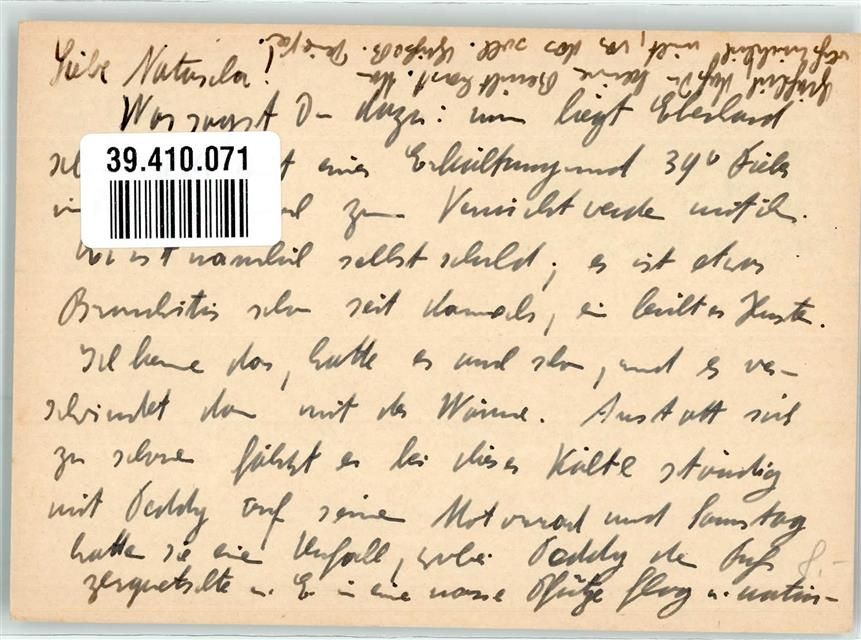 Liebe Natascha!
Was sagst Du dazu: nun liegt Eberhard
39.410.071
einer Erkältung und 39° Fieber
zum Verrückt werden mit ihm.
Er ist nämlich selbst schuld, es ist etwas
Bronchitis schon seit damals, ein leichtes Husten.
Ich kenne das, hatte es auch schon, und es ver-
schwindet dann mit der Wärme. Anstatt sich
zu schonen fährt er bei dieser Kälte ständig
mit Teddy auf seinem Motorrad und Samstag
hatten sie einen Unfall, wobei Teddy den Fuß
zerquetschte u. E. in eine nasse Pfütze flog u. natür-